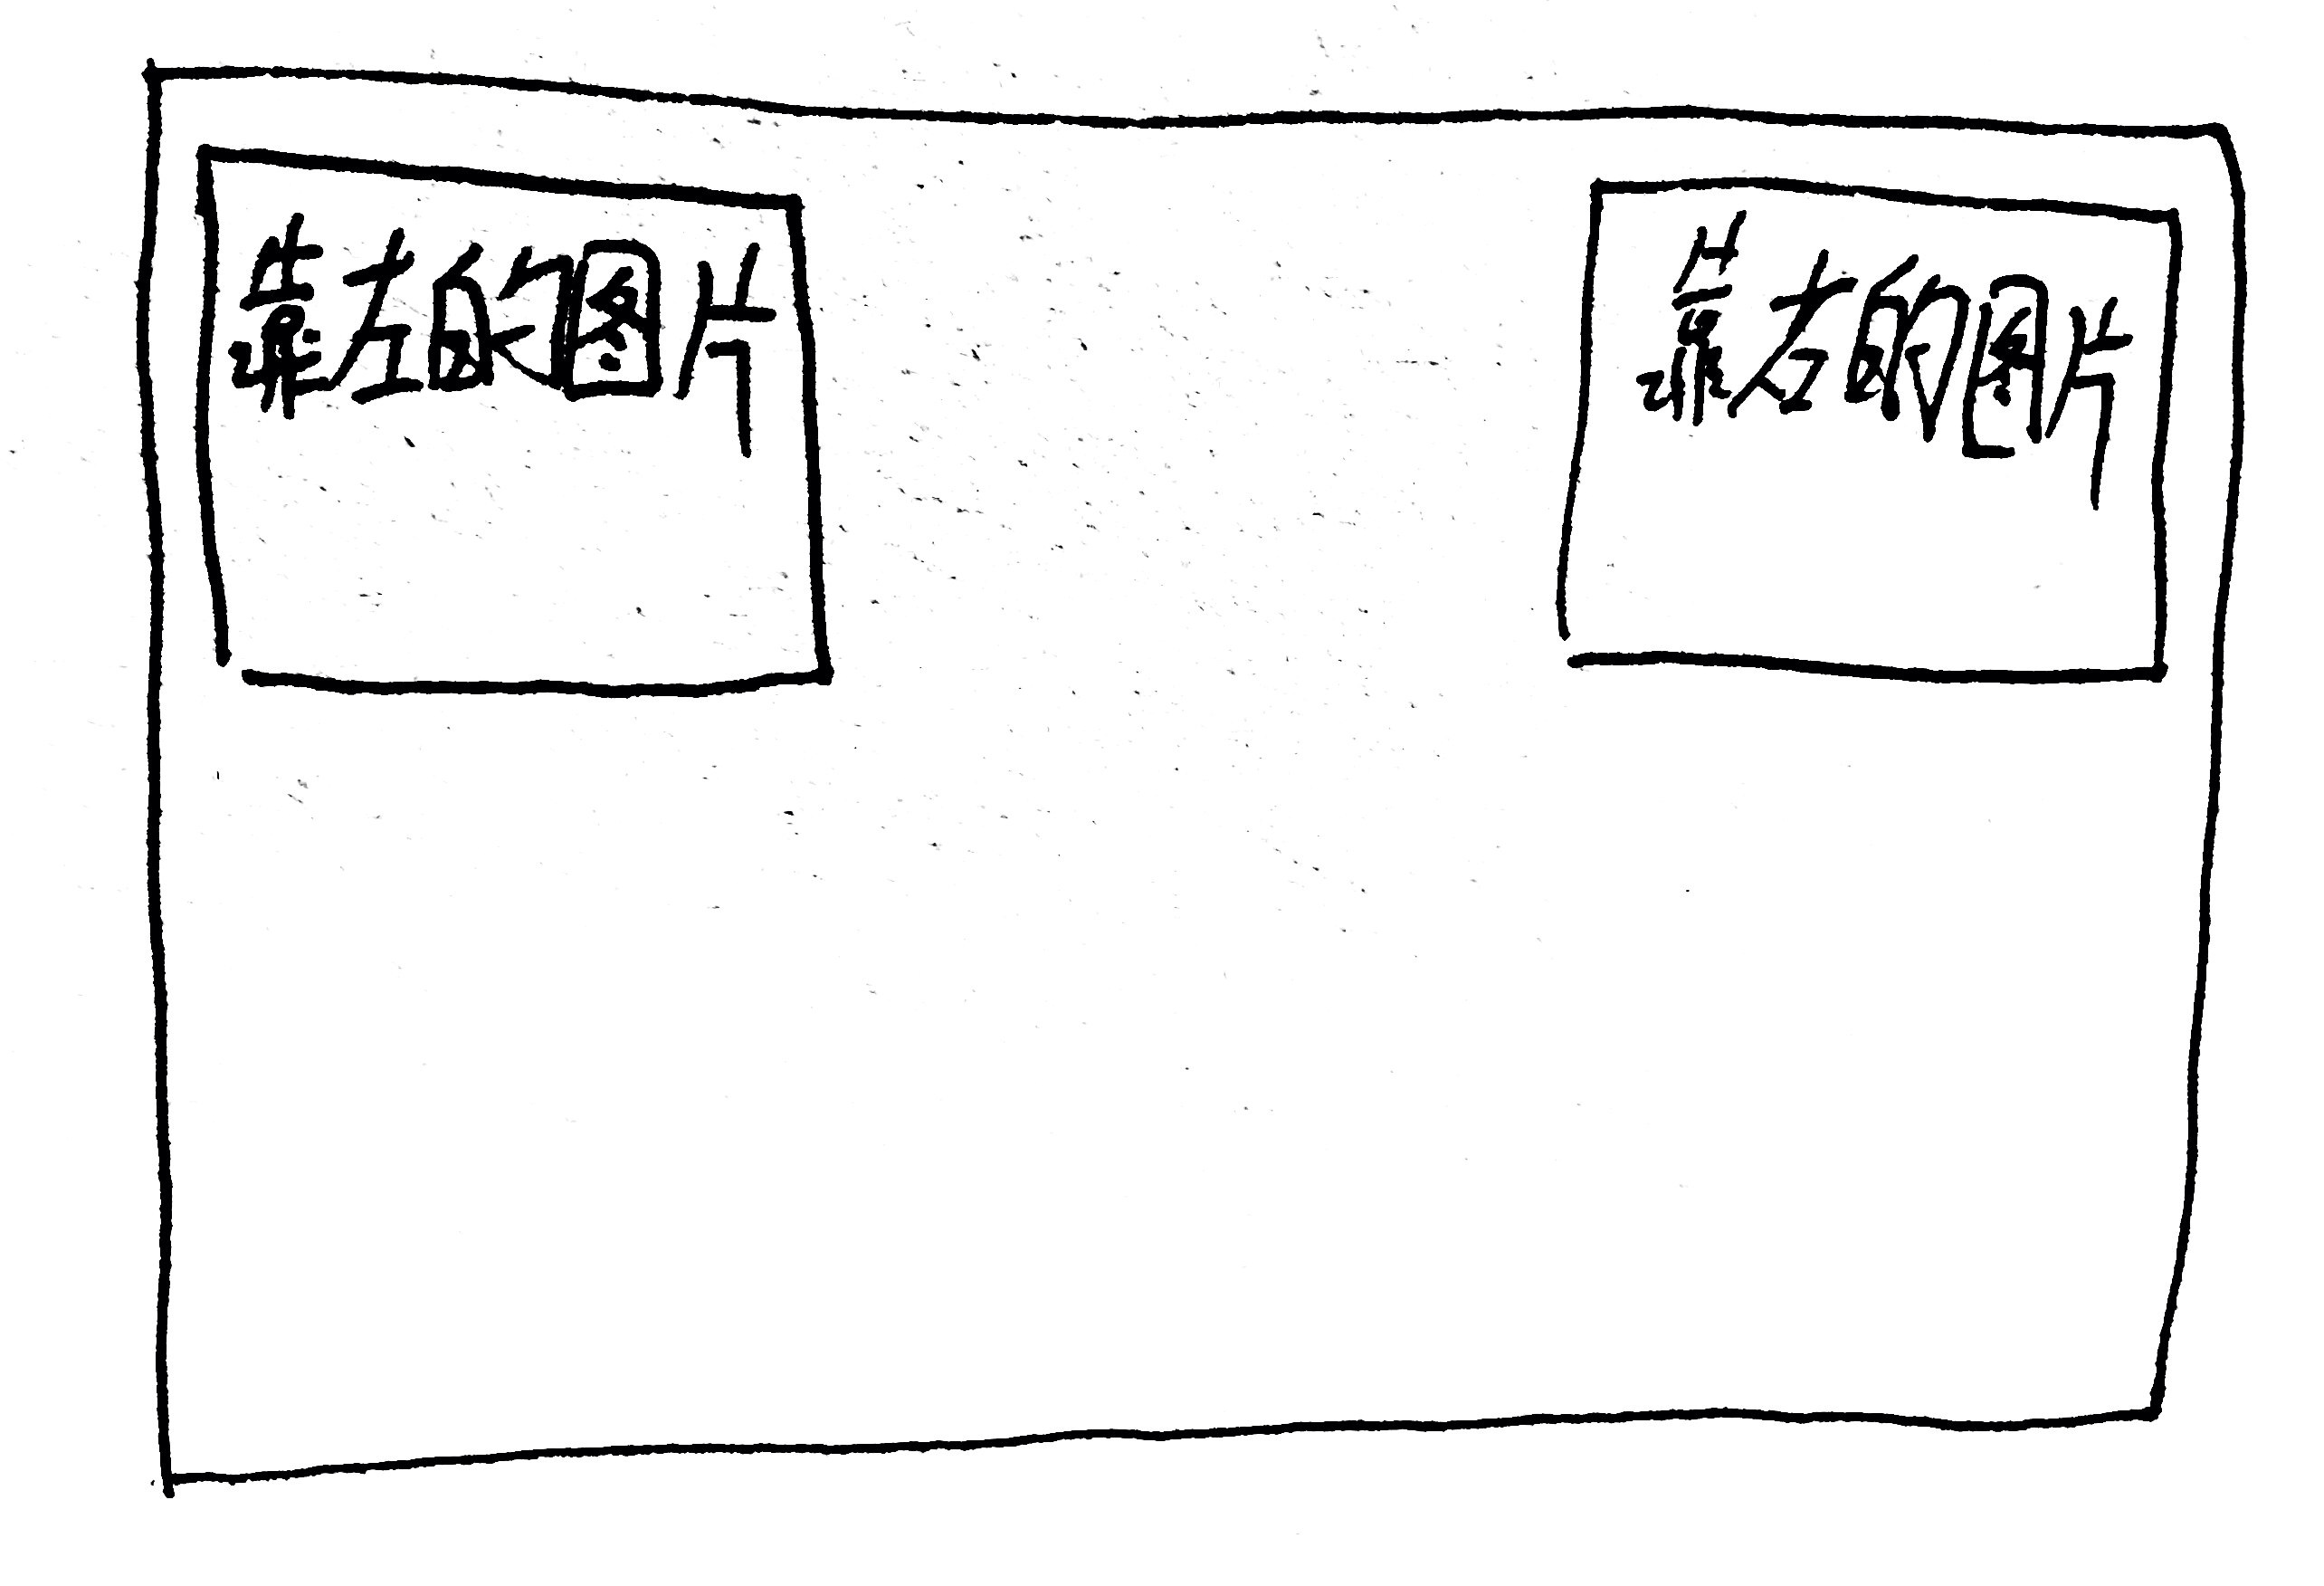 靠左的图片
靠左的图片